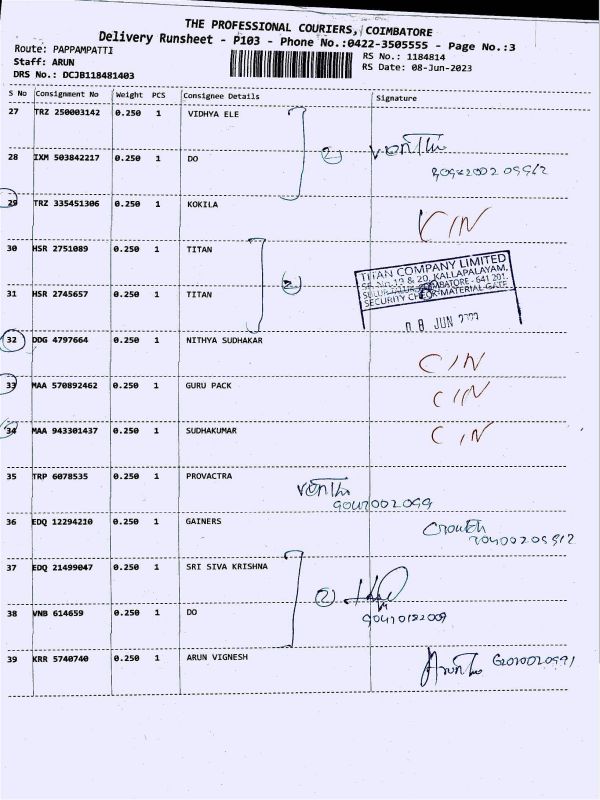 THE PROFESSIONAL COURIERS, COIMBATORE
Delivery Runsheet - P103 - Phone No.:0422-3505555 - Page No.:3
Route: PAPPAMPATTI
RS No.: 1184814
Staff: ARUN
RS Date: 08-Jun-2023
DRS No.: DCJB118481403
S No Consignment No Weight PCS Consignee Details Signature
27 TRZ 250003142 0.250 1 VIDHYA ELE
28 IXM 503842217 0.250 1 DO
2
29 TRZ 335451306 0.250 1 KOKILA
30 HSR 2751089 0.250 1 TITAN
31 HSR 2745657 0.250 1 TITAN
2
TITAN COMPANY LIMITED
KALLAPALAYAM,
COIMBATORE - 641 201.
SECURITY CHECK-MATERIAL GATE
08 JUN
32 DDG 4797664 0.250 1 NITHYA SUDHAKAR C/N
33 MAA 570892462 0.250 1 GURU PACK C/N
34 MAA 943301437 0.250 1 SUDHAKUMAR C/N
35 TRP 6078535 0.250 1 PROVACTRA
36 EDQ 12294210 0.250 1 GAINERS
37 EDQ 21499047 0.250 1 SRI SIVA KRISHNA
2
38 VNB 614659 0.250 1 DO
39 KRR 5740740 0.250 1 ARUN VIGNESH